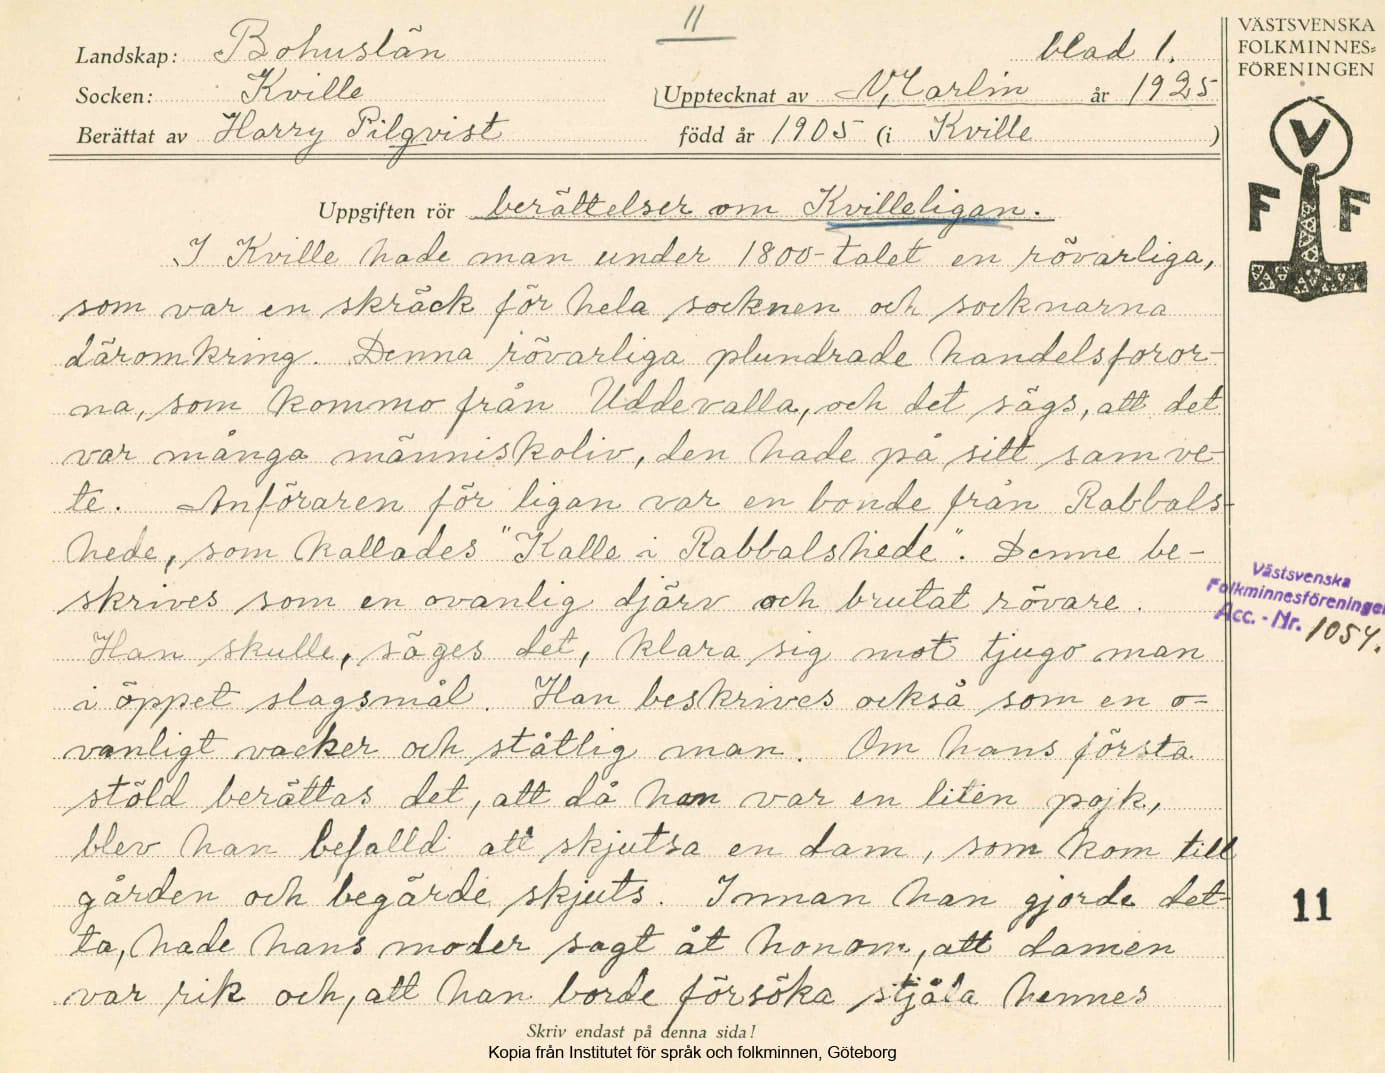 11
Landskap: Bohuslän
blad 1.
Socken: Kville
Upptecknat av V, Carlin år 1925
Berättat av Harry Pilqvist
född år 1905 (i Kville )
Uppgiften rör berättelser om Kvilleligan.
I Kville hade man under 1800-talet en rövarliga,
som var en skräck för hela socknen och socknarna
däromkring. Denna rövarliga plundrade handelsforor-
na, som kommo från Uddevalla, och det sägs, att det
var många människoliv, den hade på sitt samve-
te. Anföraren för ligan var en bonde från Rabbals-
hede, som kallades "Kalle i Rabbalshede". Denne be-
skrives som en ovanlig djärv och brutat rövare.
Han skulle, säges det, klara sig mot tjugo man
i öppet slagsmål. Han beskrives också som en o-
vanligt vacker och ståtlig man. Om hans första
stöld berättas det, att då han var en liten pojk,
blev han befalld att skjutsa en dam, som kom till
gården och begärde skjuts. Innan han gjorde det-
ta, hade hans moder sagt åt honom, att damen
var rik och, att han borde försöka stjäla hennes
Skriv endast på denna sida!
Kopia från Institutet för språk och folkminnen, Göteborg
VÄSTSVENSKA
FOLKMINNES=
FÖRENINGEN
V
F F
Västsvenska
Folkminnesföreningen
Acc. - Nr. 1054.
11